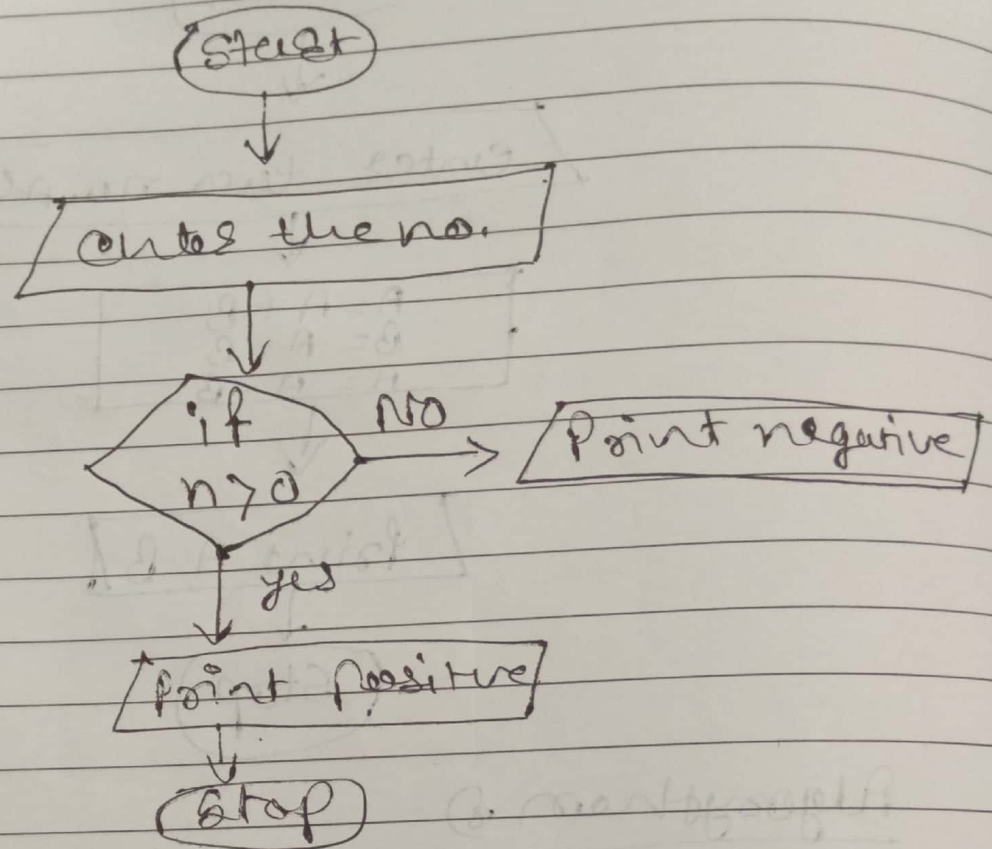 Start
enter the no.
if
n>0
NO
Print negative
yes
Print positive
Stop